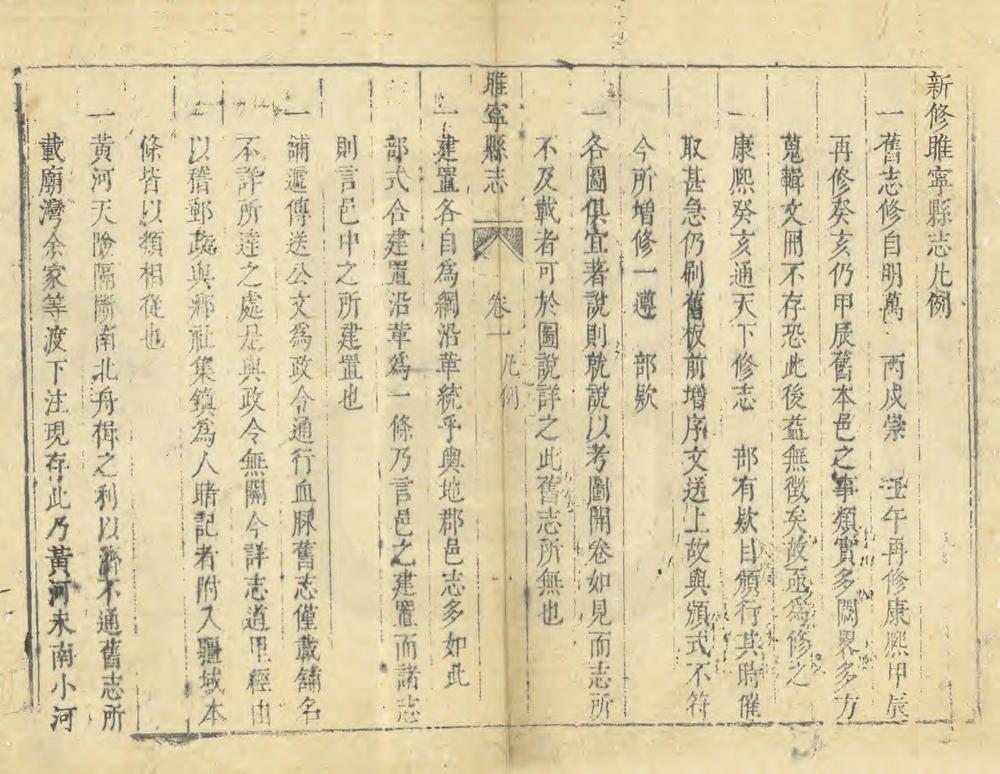 新修睢寧縣志凡例
一舊志修自明萬 丙戌崇 壬午再修康熙甲辰
再修癸亥仍甲辰舊本邑之事類實多闕畧多方
蒐輯文冊不存恐此後益無徵矣故亟為修之
一康熙癸亥通天下修志 部有欵目頒行其時催
取甚急仍刷舊板前增序文送上故與頒式不符
今所增修一遵 部欵
一各圖俱宜著說則就說以考圖開卷如見而志所
不及載者可於圖說詳之此舊志所無也
睢寧縣志 卷一 凡例
一建置各自為綱沿革統乎輿地郡邑志多如此
部式合建置沿革為一條乃言邑之建置而諸志
則言邑中之所建置也
一舖遞傳送公文為政令通行血脉舊志僅載舖名
不詳所達之處是與政令無關今詳志道里經由
以稽郵政與鄉社集鎮為人睹記者附入疆域本
條皆以類相從也
一黃河天險隔斷南北舟楫之利以濟不通舊志所
載廟灣余家等渡下注現存此乃黃河未南小河